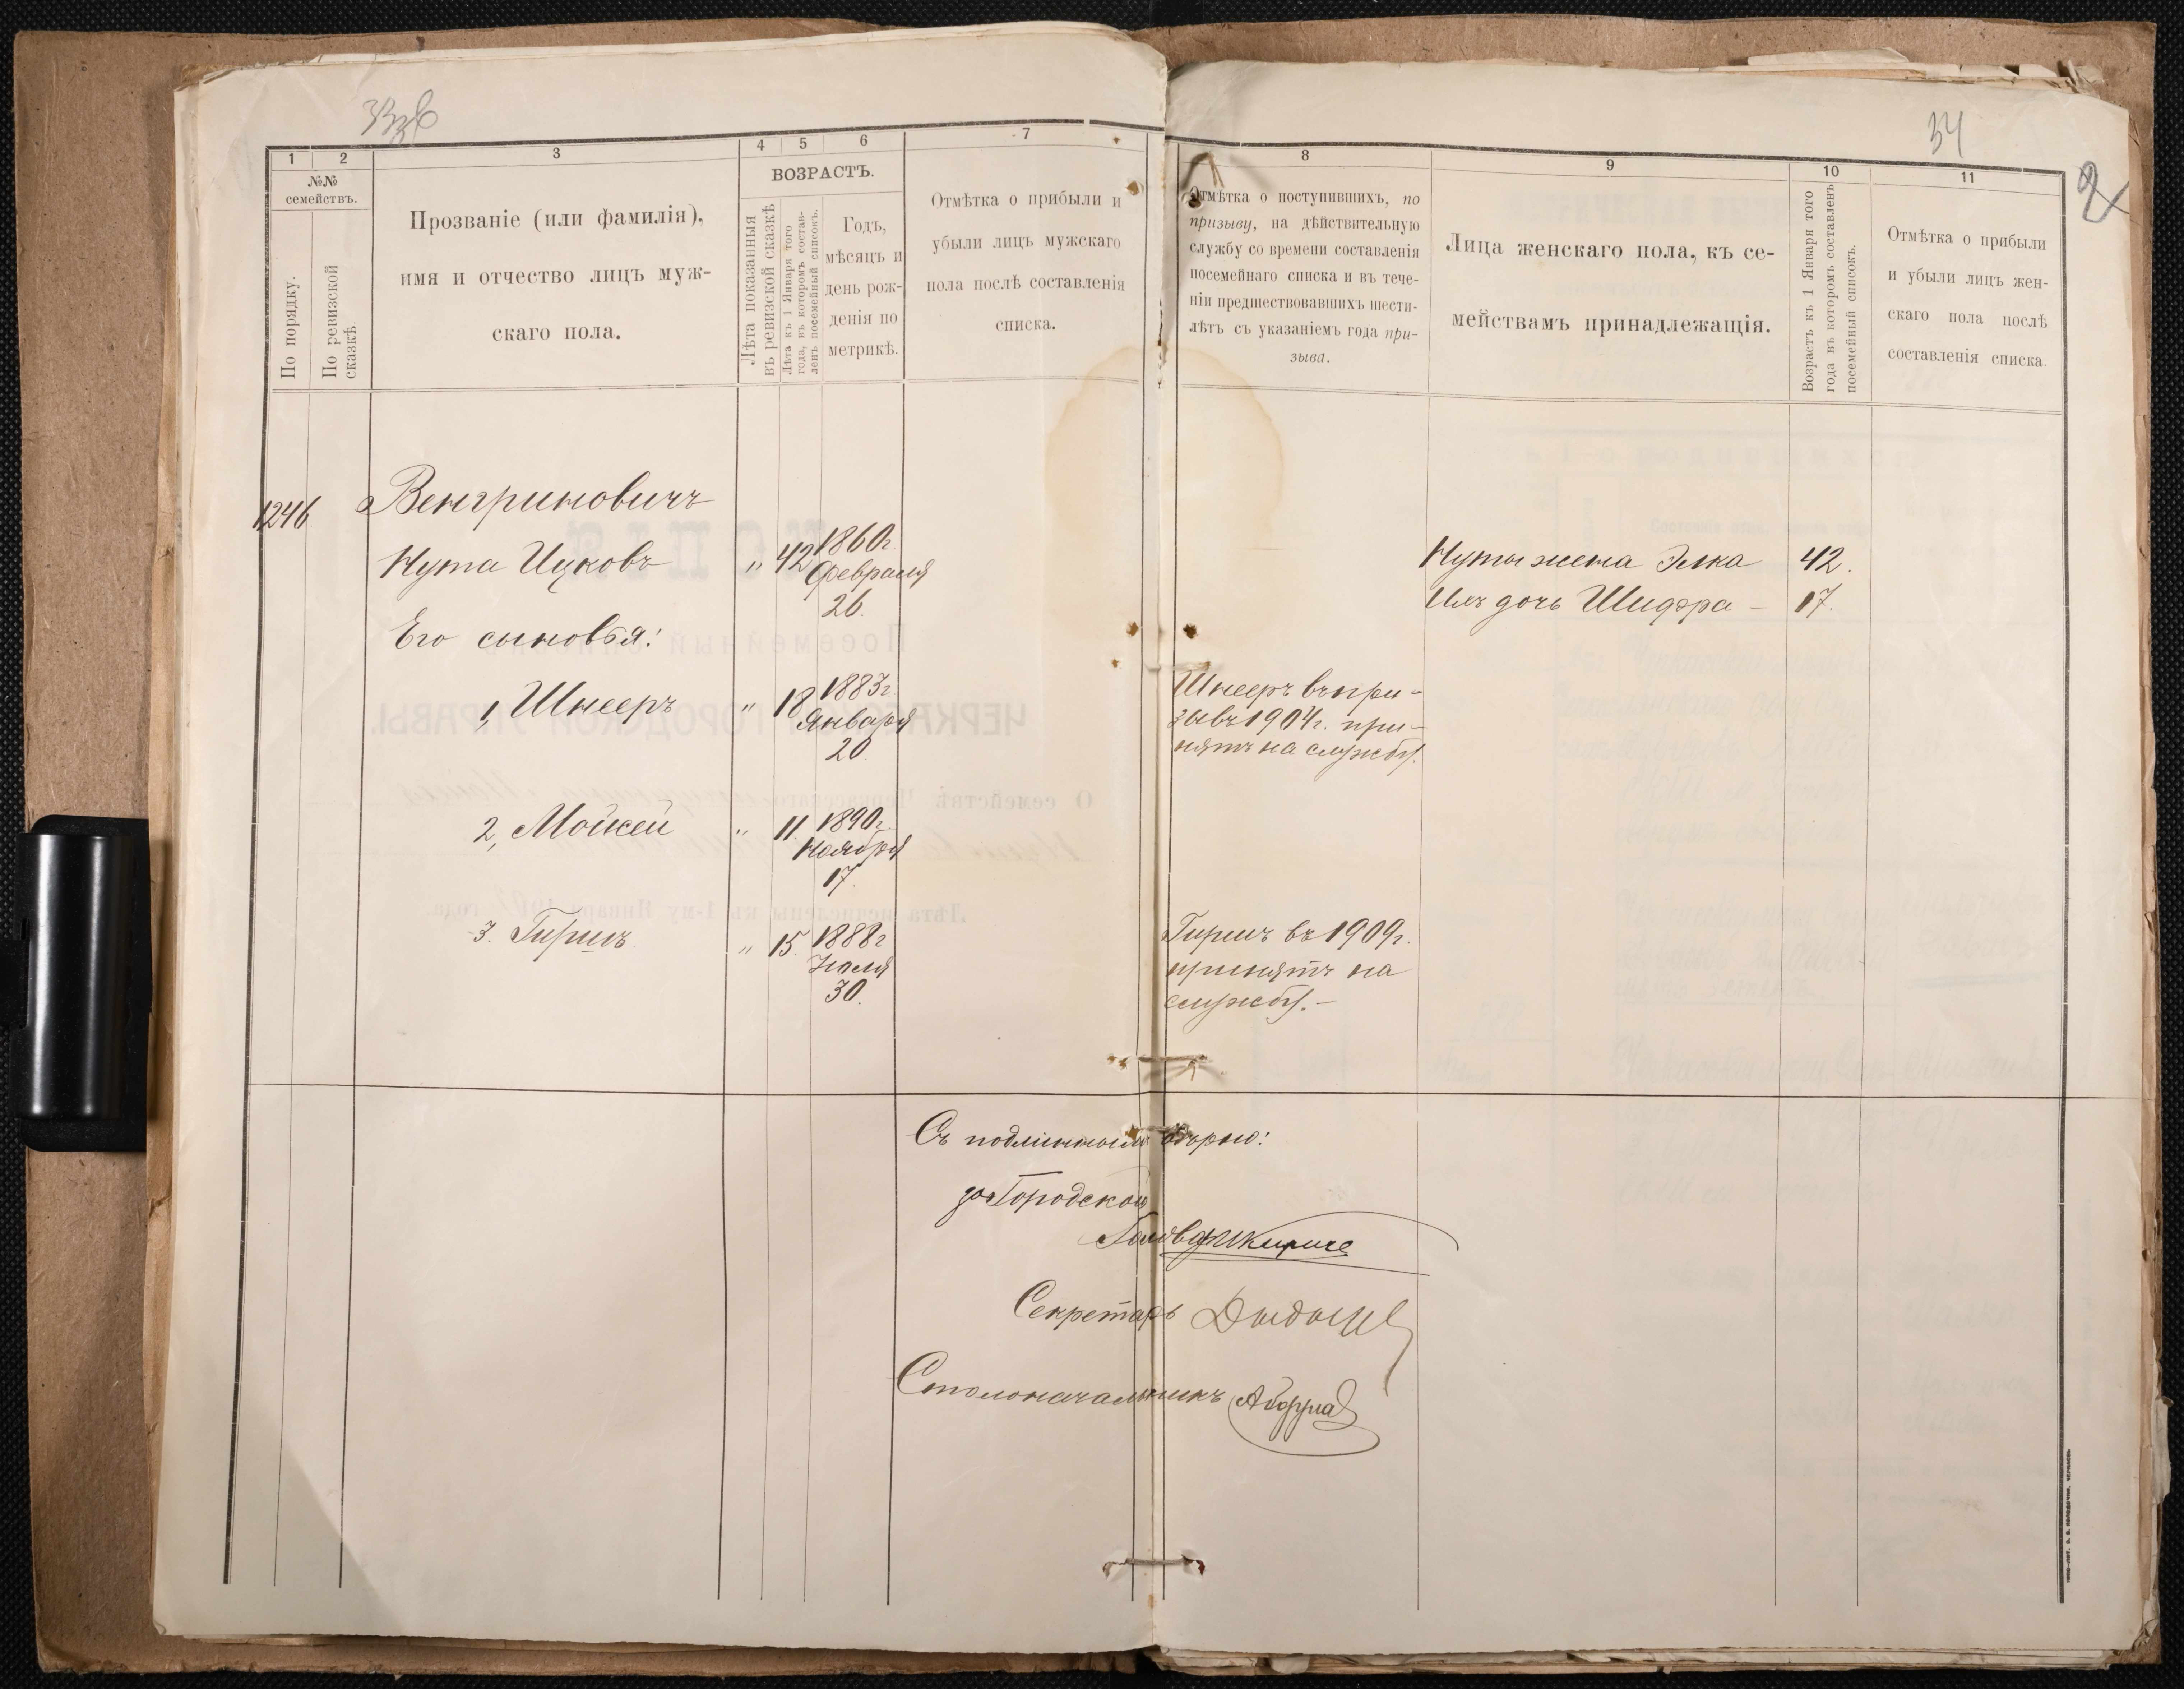 34
2
1
2
3
4
5
6
7
№№
семействъ.
По порядку.
По ревизской
сказкѣ.
Прозваніе (или фамилія),
имя и отчество лицъ муж-
скаго пола.
ВОЗРАСТЪ.
Лѣта показанныя
въ ревизской сказкѣ
Лѣта къ 1 Января того
года, въ которомъ состав-
ленъ посемейный списокъ.
Годъ,
мѣсяцъ и
день рож-
денія по
метрикѣ.
Отмѣтка о прибыли и
убыли лицъ мужскаго
пола послѣ составленія
списка.
8
9
10
11
Отмѣтка о поступившихъ, по
призыву, на дѣйствительную
службу со времени составленія
посемейнаго списка и въ тече-
ніи предшествовавшихъ шести-
лѣтъ съ указаніемъ года при-
зыва.
Лица женскаго пола, къ се-
мействамъ принадлежащія.
Возрастъ къ 1 Января того
года въ которомъ составленъ
посемейный списокъ.
Отмѣтка о прибыли
и убыли лицъ жен-
скаго пола послѣ
составленія списка.
1246
Венгриновичъ
Нута Ицковъ " 42 1860г
Февраля
26.
Его сыновья:
1, Шнееръ " 18 1883г
Января
20
2, Мойсей " 11. 1890г.
Ноября
17.
3. Гиршъ " 15. 1888г
Іюля
30.
Шнееръ въ при-
зывъ 1904г. при-
нятъ на службу.
Гиршъ въ 1909г.
принятъ на
службу.-
Нуты жена Элка 42.
Ихъ дочь Шифра - 17.
Съ подлиннымъ вѣрно:
за Городского
Голову
Секретарь
Столоначальникъ